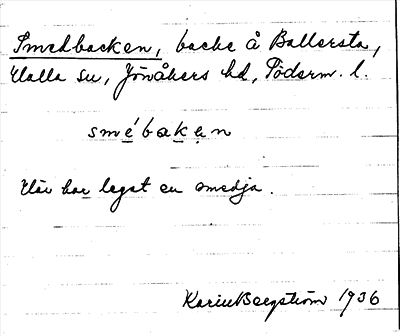 Smedbacken, backe å Ballersta,
Halla sn, Jönåkers hd, Söderm. l.
smébakɘn
Här har legat en smedja.
Karin Bergström 1936